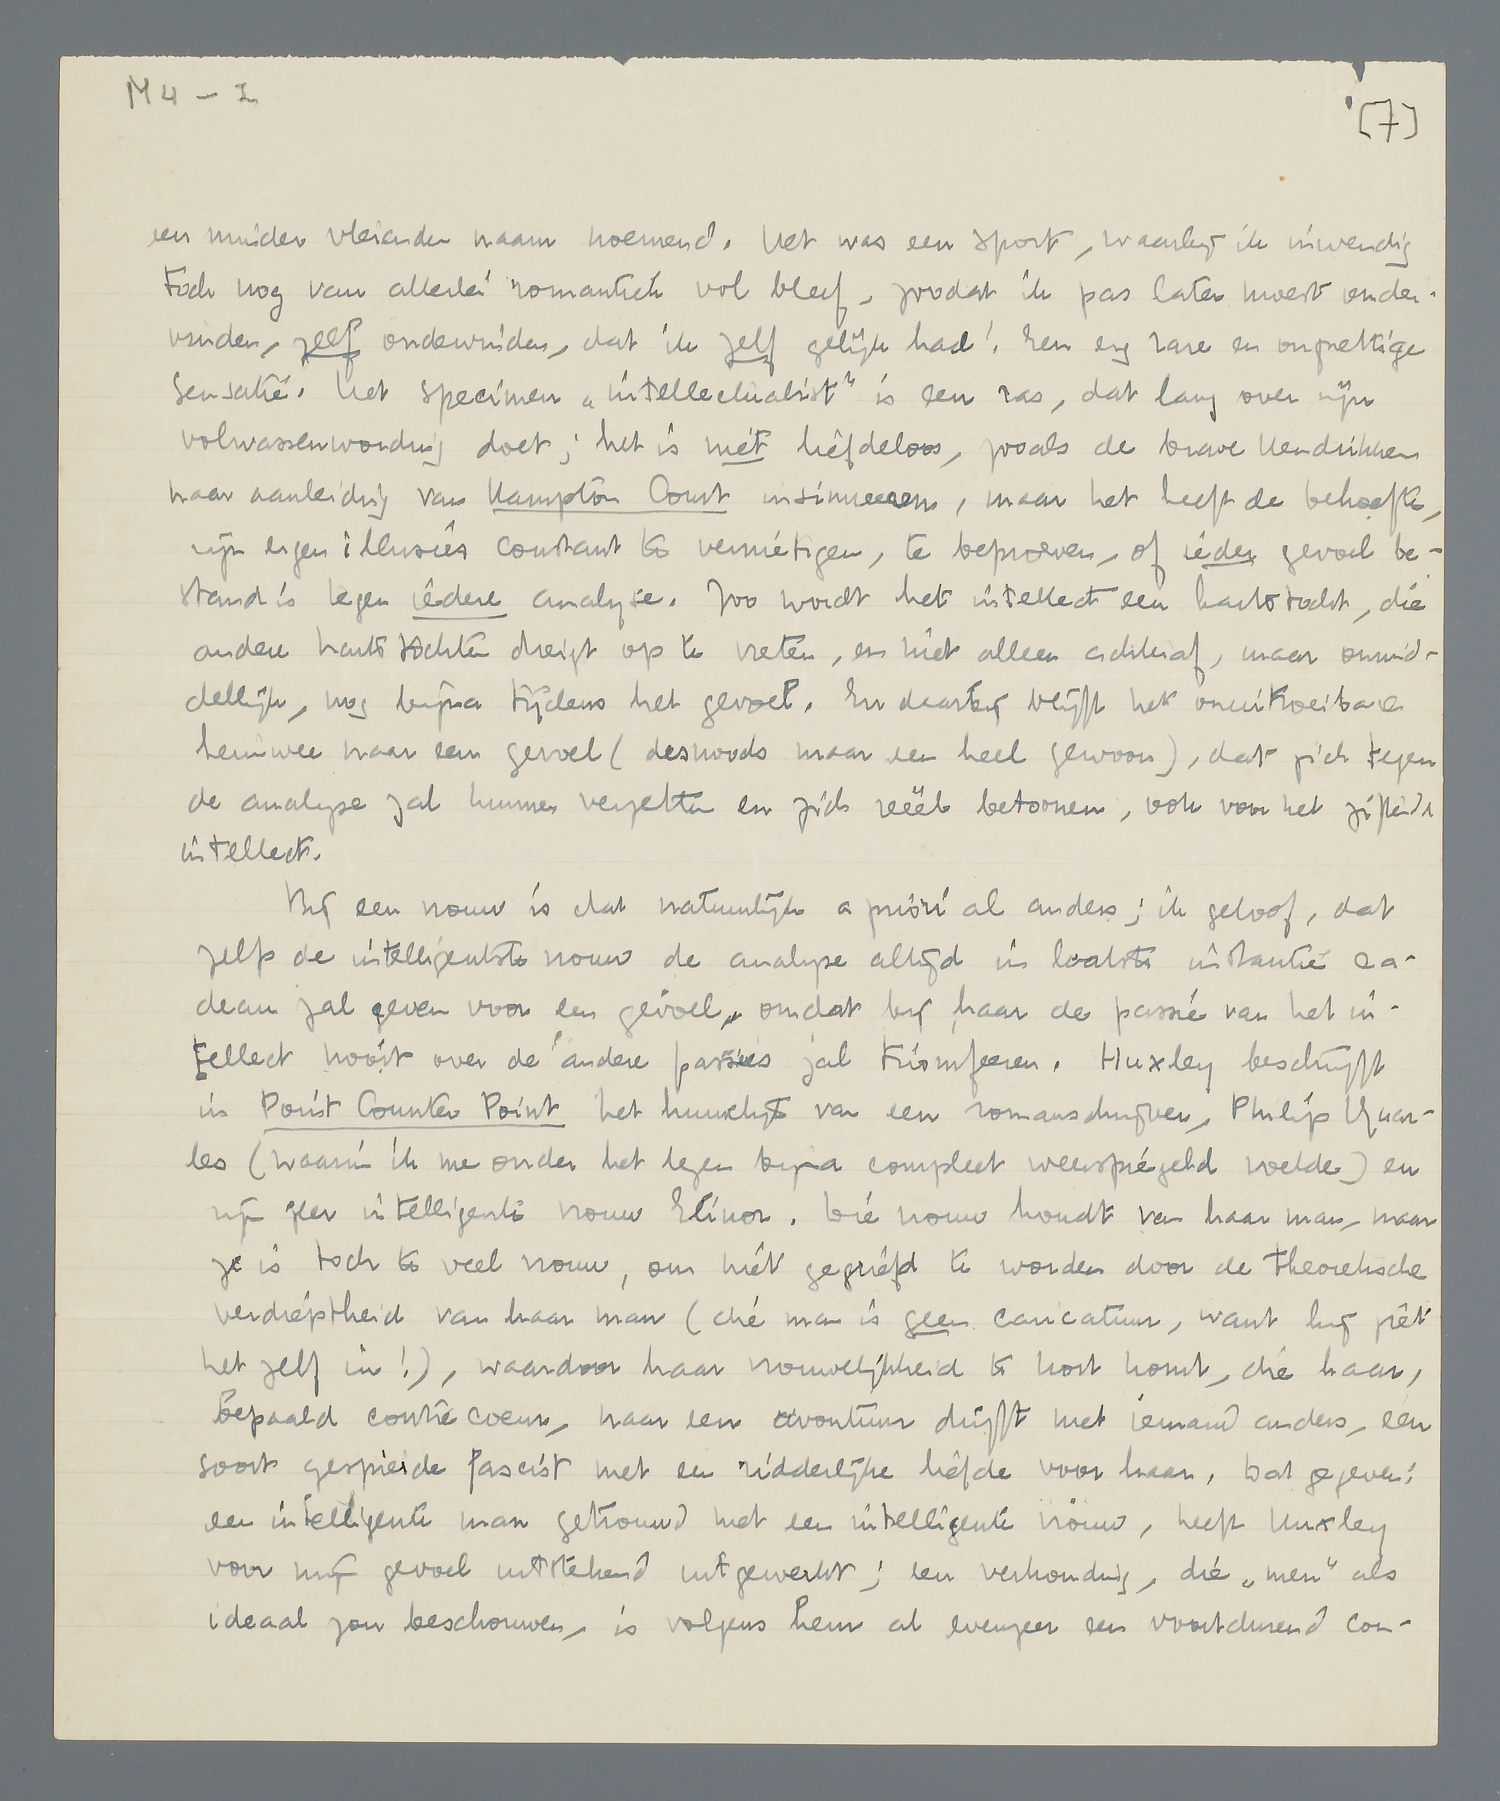 M4 – I
[7]
een minder vleienden naam noemend. Het was een sport, waarbij ik inwendig
toch nog van allerlei romantiek vol bleef, zoodat ik pas later moest onder-
vinden, zelf ondervinden, dat ik zelf gelijk had! Een erg rare en onprettige
sensatie. Het specimen „intellectualist" is een ras, dat lang over zijn
volwassenwording doet; het is niet liefdeloos, zooals de brave Hendrikken
naar aanleiding van Hampton Court insinueeren, maar het heeft de behoefte,
zijn eigen illusies constant te vernietigen, te beproeven, of ieder gevoel be-
stand is tegen iedere analyse. Zoo wordt het intellect een hartstocht, die
andere hartstochten dreigt op te vreten, en niet alleen achteraf, maar onmid-
dellijk, nog bijna tijdens het gevoel. En daarbij blijft het onuitroeibare
heimwee naar een gevoel (desnoods maar een heel gewoon), dat zich tegen
de analyse zal kunnen verzetten en zich reëel betoonen, ook voor het ziftend
intellect.
Bij een vrouw is dat natuurlijk a priori al anders; ik geloof, dat
zelfs de intelligentste vrouw de analyse altijd in laatste instantie ca-
deau zal geven voor een gevoel, omdat bij haar de passie van het in-
tellect nooit over de andere passies zal triomfeeren. Huxley beschrijft
in Point Counter Point het huwelijk van een romanschrijver, Philip Quar-
les (waarin ik me onder het lezen bijna compleet weerspiegeld voelde) en
zijn zeer intelligente vrouw Elinor. Die vrouw houdt van haar man, maar
ze is toch te veel vrouw, om niet gegriefd te worden door de theoretische
verdieptheid van haar man (die man is geen caricatuur, want hij ziet
het zelf in!), waardoor haar vrouwelijkheid te kort komt, die haar,
bepaald contre coeur, naar een avontuur drijft met iemand anders, een
soort gespierde fascist met een ridderlijke liefde voor haar. Dat gegeven:
een intelligente man getrouwd met een intelligente vrouw, heeft Huxley
voor mijn gevoel uitstekend uitgewerkt; een verhouding, die „men" als
ideaal zou beschouwen, is volgens hem al evenzeer een voortdurend con-